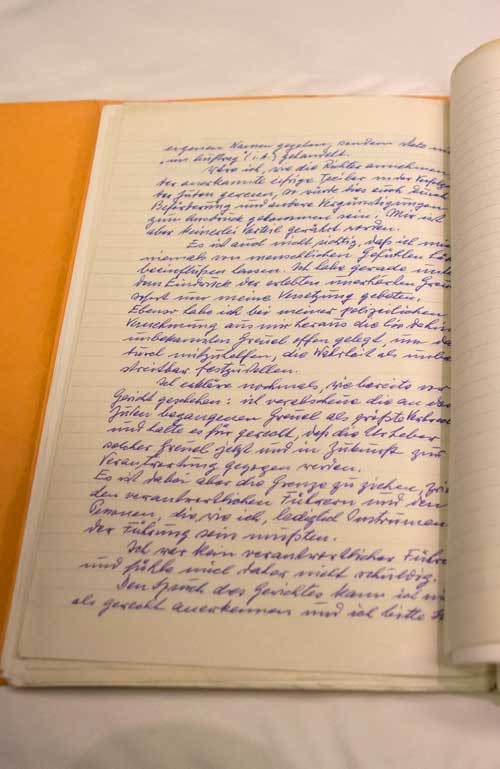 eigenen Namen gegeben, sondern stets nu
"im Auftrag" (i.A.) gehandelt.
Wäre ich, wie die Richter annehmen,
der anerkannte eifrige Treiber in der Verfolg
der Juden gewesen, so würde dies auch durch
Beförderung und andere Vergünstigungen
zum Ausdruck gekommen sein. Mir ist
aber keinerlei Vorteil gewährt worden.
Es ist auch nicht richtig, daß ich mic
niemals von menschlichen Gefühlen hät
beeinflußen lassen. Ich habe gerade unte
dem Eindruck der erlebten unerhörten Greu
sofort um meine Versetzung gebeten.
Ebenso habe ich bei meiner polizeilichen
Vernehmung aus mir heraus die bis dahin
unbekannten Greuel offen gelegt, um da
durch mitzuhelfen, die Wahrheit als unbe
streitbar festzustellen.
Ich erkläre nochmals, wie bereits vor
Gericht geschehen: ich verabscheue die an den
Juden begangenen Greuel als größte Verbrech
und halte es für gerecht, daß die Urheber
solcher Greuel jetzt und in Zukunft zur
Verantwortung gezogen werden.
Es ist dabei aber die Grenze zu ziehen, zwi
den verantwortlichen Führern und den
Personen, die, wie ich, lediglich Instrumen
der Führung sein mußten.
Ich war kein verantwortlicher Führe
und fühle mich daher nicht schuldig.
Den Spruch des Gerichtes kann ich ni
als gerecht anerkennen und ich bitte